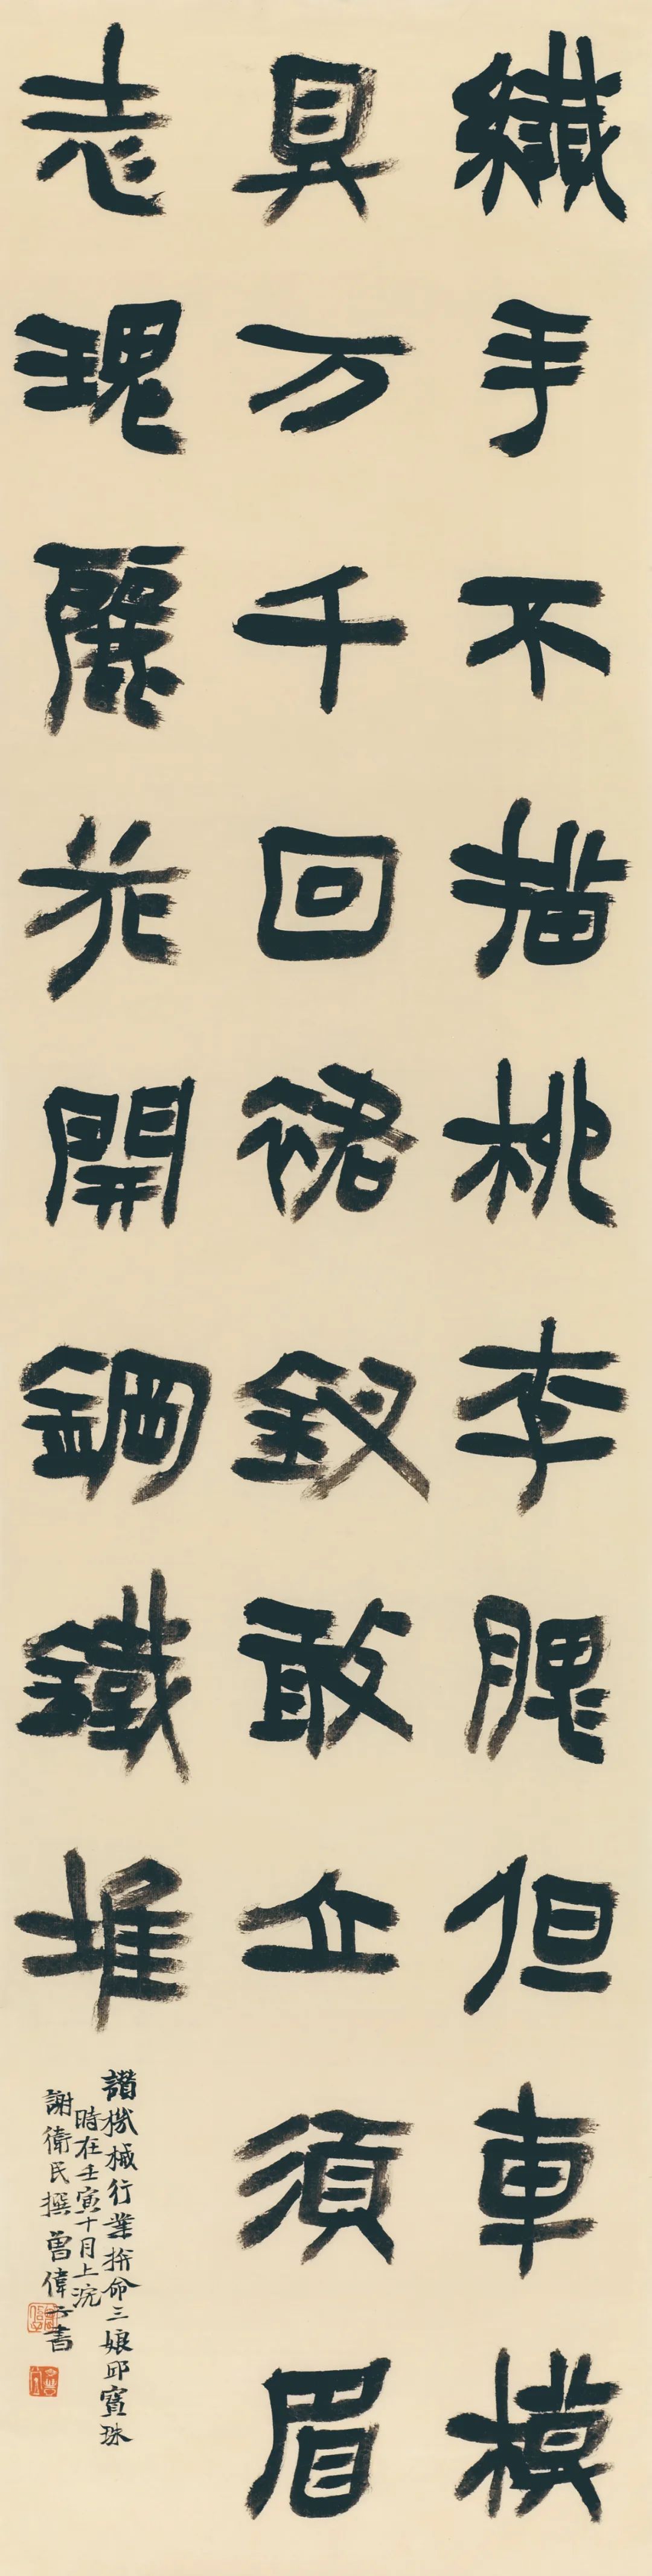 纖手不描桃李腮但車模
具万千回裙釵敢立須眉
志瑰麗花開鋼鐵堆
讚機械行業拚命三娘邱寶珠
時在壬寅十月上浣
謝衛民撰 曾偉書